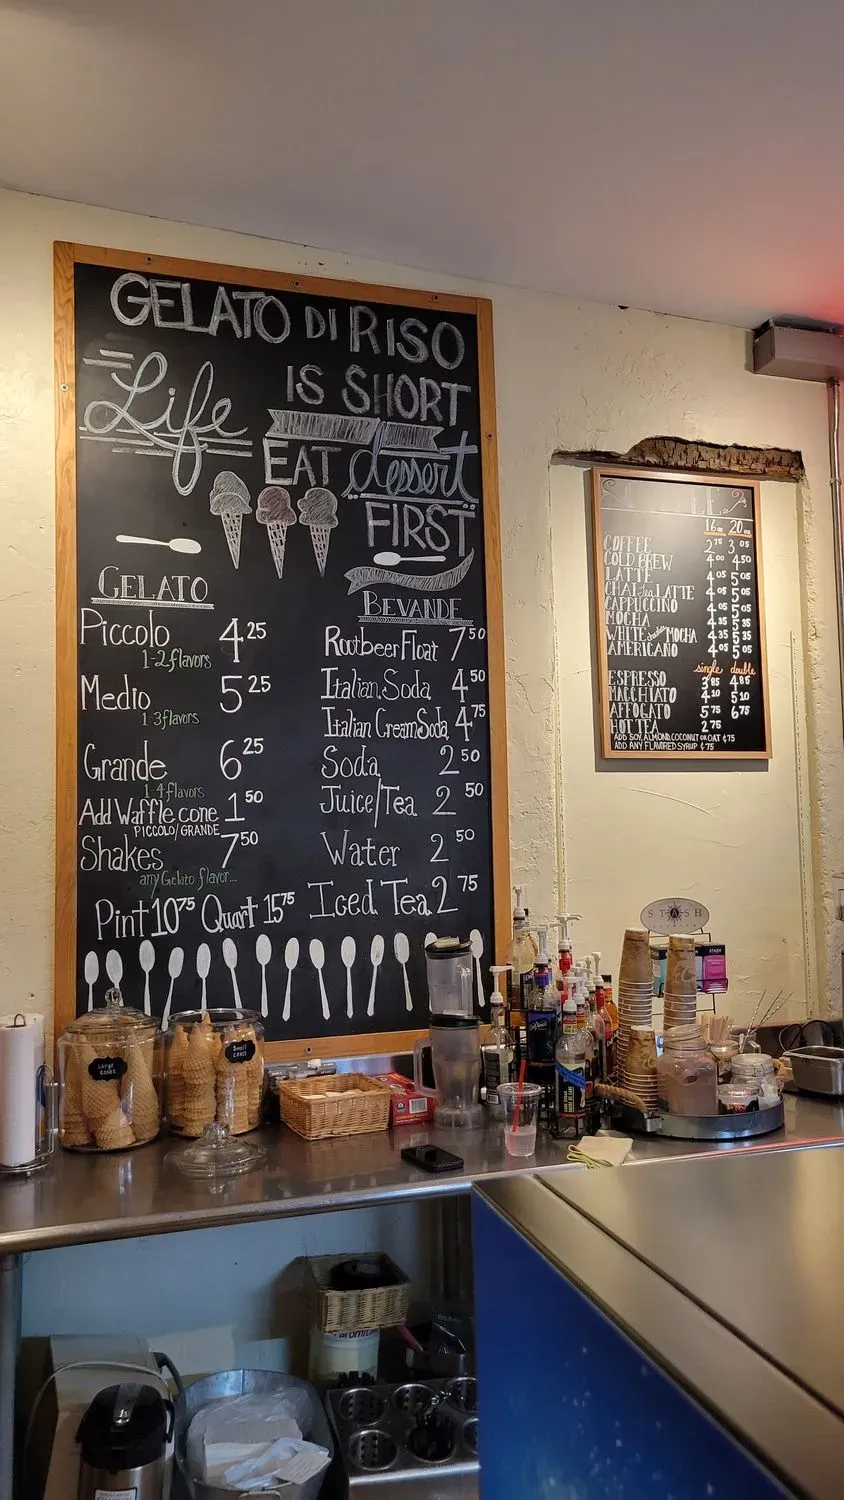 GELATO DI RISO
Life IS SHORT
EAT dessert
FIRST
GELATO
Piccolo 4 25
1-2 flavors
Medio 5 25
1-3 flavors
Grande 6 25
1-4 flavors
Add Waffle cone 1 50
PICCOLO/GRANDE
Shakes 7 50
any Gelato flavor...
Pint 10 75 Quart 15 75
BEVANDE
Rootbeer Float 7 50
Italian Soda 4 50
Italian Cream Soda 4 75
Soda 2 50
Juice/Tea 2 50
Water 2 50
Iced Tea 2 75
16oz 20oz
COFFEE 2 75 3 05
COLD BREW 4 00 4 50
LATTE 4 05 5 05
CHAI Tea LATTE 4 05 5 05
CAPPUCCINO 4 05 5 05
MOCHA 4 35 5 35
WHITE MOCHA 4 35 5 35
AMERICANO 4 05 5 05
single double
ESPRESSO 3 85 4 85
MACCHIATO 4 10 5 10
AFFOGATO 5 75 6 75
HOT TEA 2 75
ADD SOY, ALMOND, COCONUT OR OAT ¢75
ADD ANY FLAVORED SYRUP ¢75
STASH
Large Cones
Small Cones